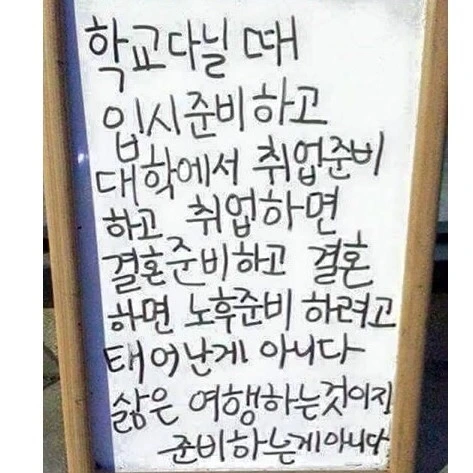 학교다닐 때
입시준비하고
대학에서 취업준비
하고 취업하면
결혼준비하고 결혼
하면 노후준비 하려고
태어난게 아니다
삶은 여행하는것이지
준비하는게아니다